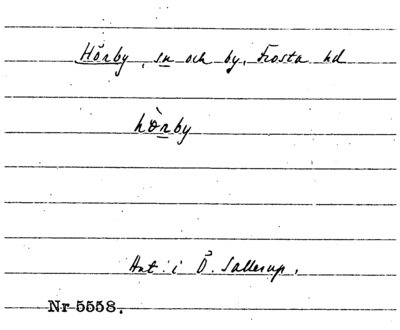 Hörby, sn och by, Frosta hd
hòrby
Ant. i Ö. Sallerup.
Nr 5558.